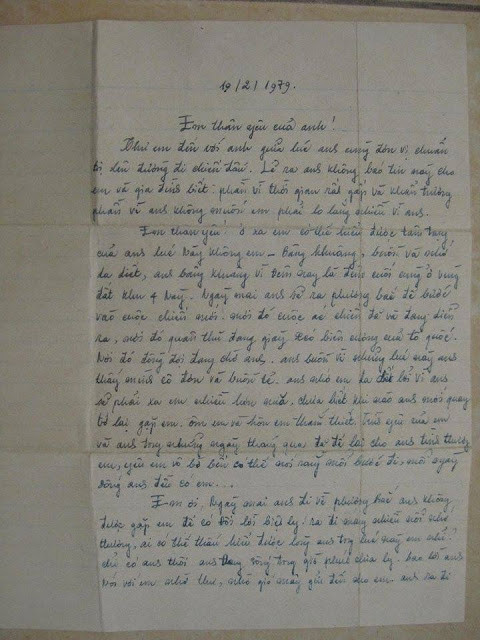 19/2/1979.
Em thân yêu của anh!
Thư em đến với anh giữa lúc anh cùng đơn vị chuẩn
bị lên đường đi chiến đấu. Lẽ ra anh không báo tin này cho
em và gia đình biết: phần vì thời gian rất gấp và khẩn trương
phần vì anh không muốn em phải lo lắng nhiều vì anh.
Em thân yêu! ở xa em có thể hiểu được tâm trạng
của anh lúc này không em - Bâng khuâng, buồn và nhớ
da diết, anh bâng khuâng vì đêm nay là đêm cuối cùng ở vùng
đất khu 4 này. Ngày mai anh sẽ ra phương bắc để bước
vào cuộc chiến mới. nơi đó cuộc chiến đã và đang diễn
ra, nơi đó quân thù đang giày xéo biên cương của tổ quốc.
Nơi đó đồng đội đang chờ anh. anh buồn vì những lúc này anh
thấy mình cô đơn và buồn tẻ. anh nhớ em da diết bởi vì anh
sẽ phải xa em nhiều hơn nữa. chưa biết khi nào anh mới quay
trở lại gặp em. ôm em và hôn em thắm thiết. tình yêu của em
và anh trong những ngày tháng qua đã để lại cho anh tình thương
em, yêu em vô bờ bến có thể nói rằng mỗi bước đi, mỗi ngày
sống anh đều có em...
Em ơi, Ngày mai anh đi về phương bắc anh không
được gặp em để có đôi lời biệt ly! ra đi mang nhiều nỗi nhớ
thương, ai có thể thấu hiểu được lòng anh trong lúc này em nhỉ!
chỉ có anh thôi anh đang sống trong giờ phút chia ly. bao lời anh
Nói với em nhờ thư, nhờ gió mây gửi đến cho em. anh ra đi